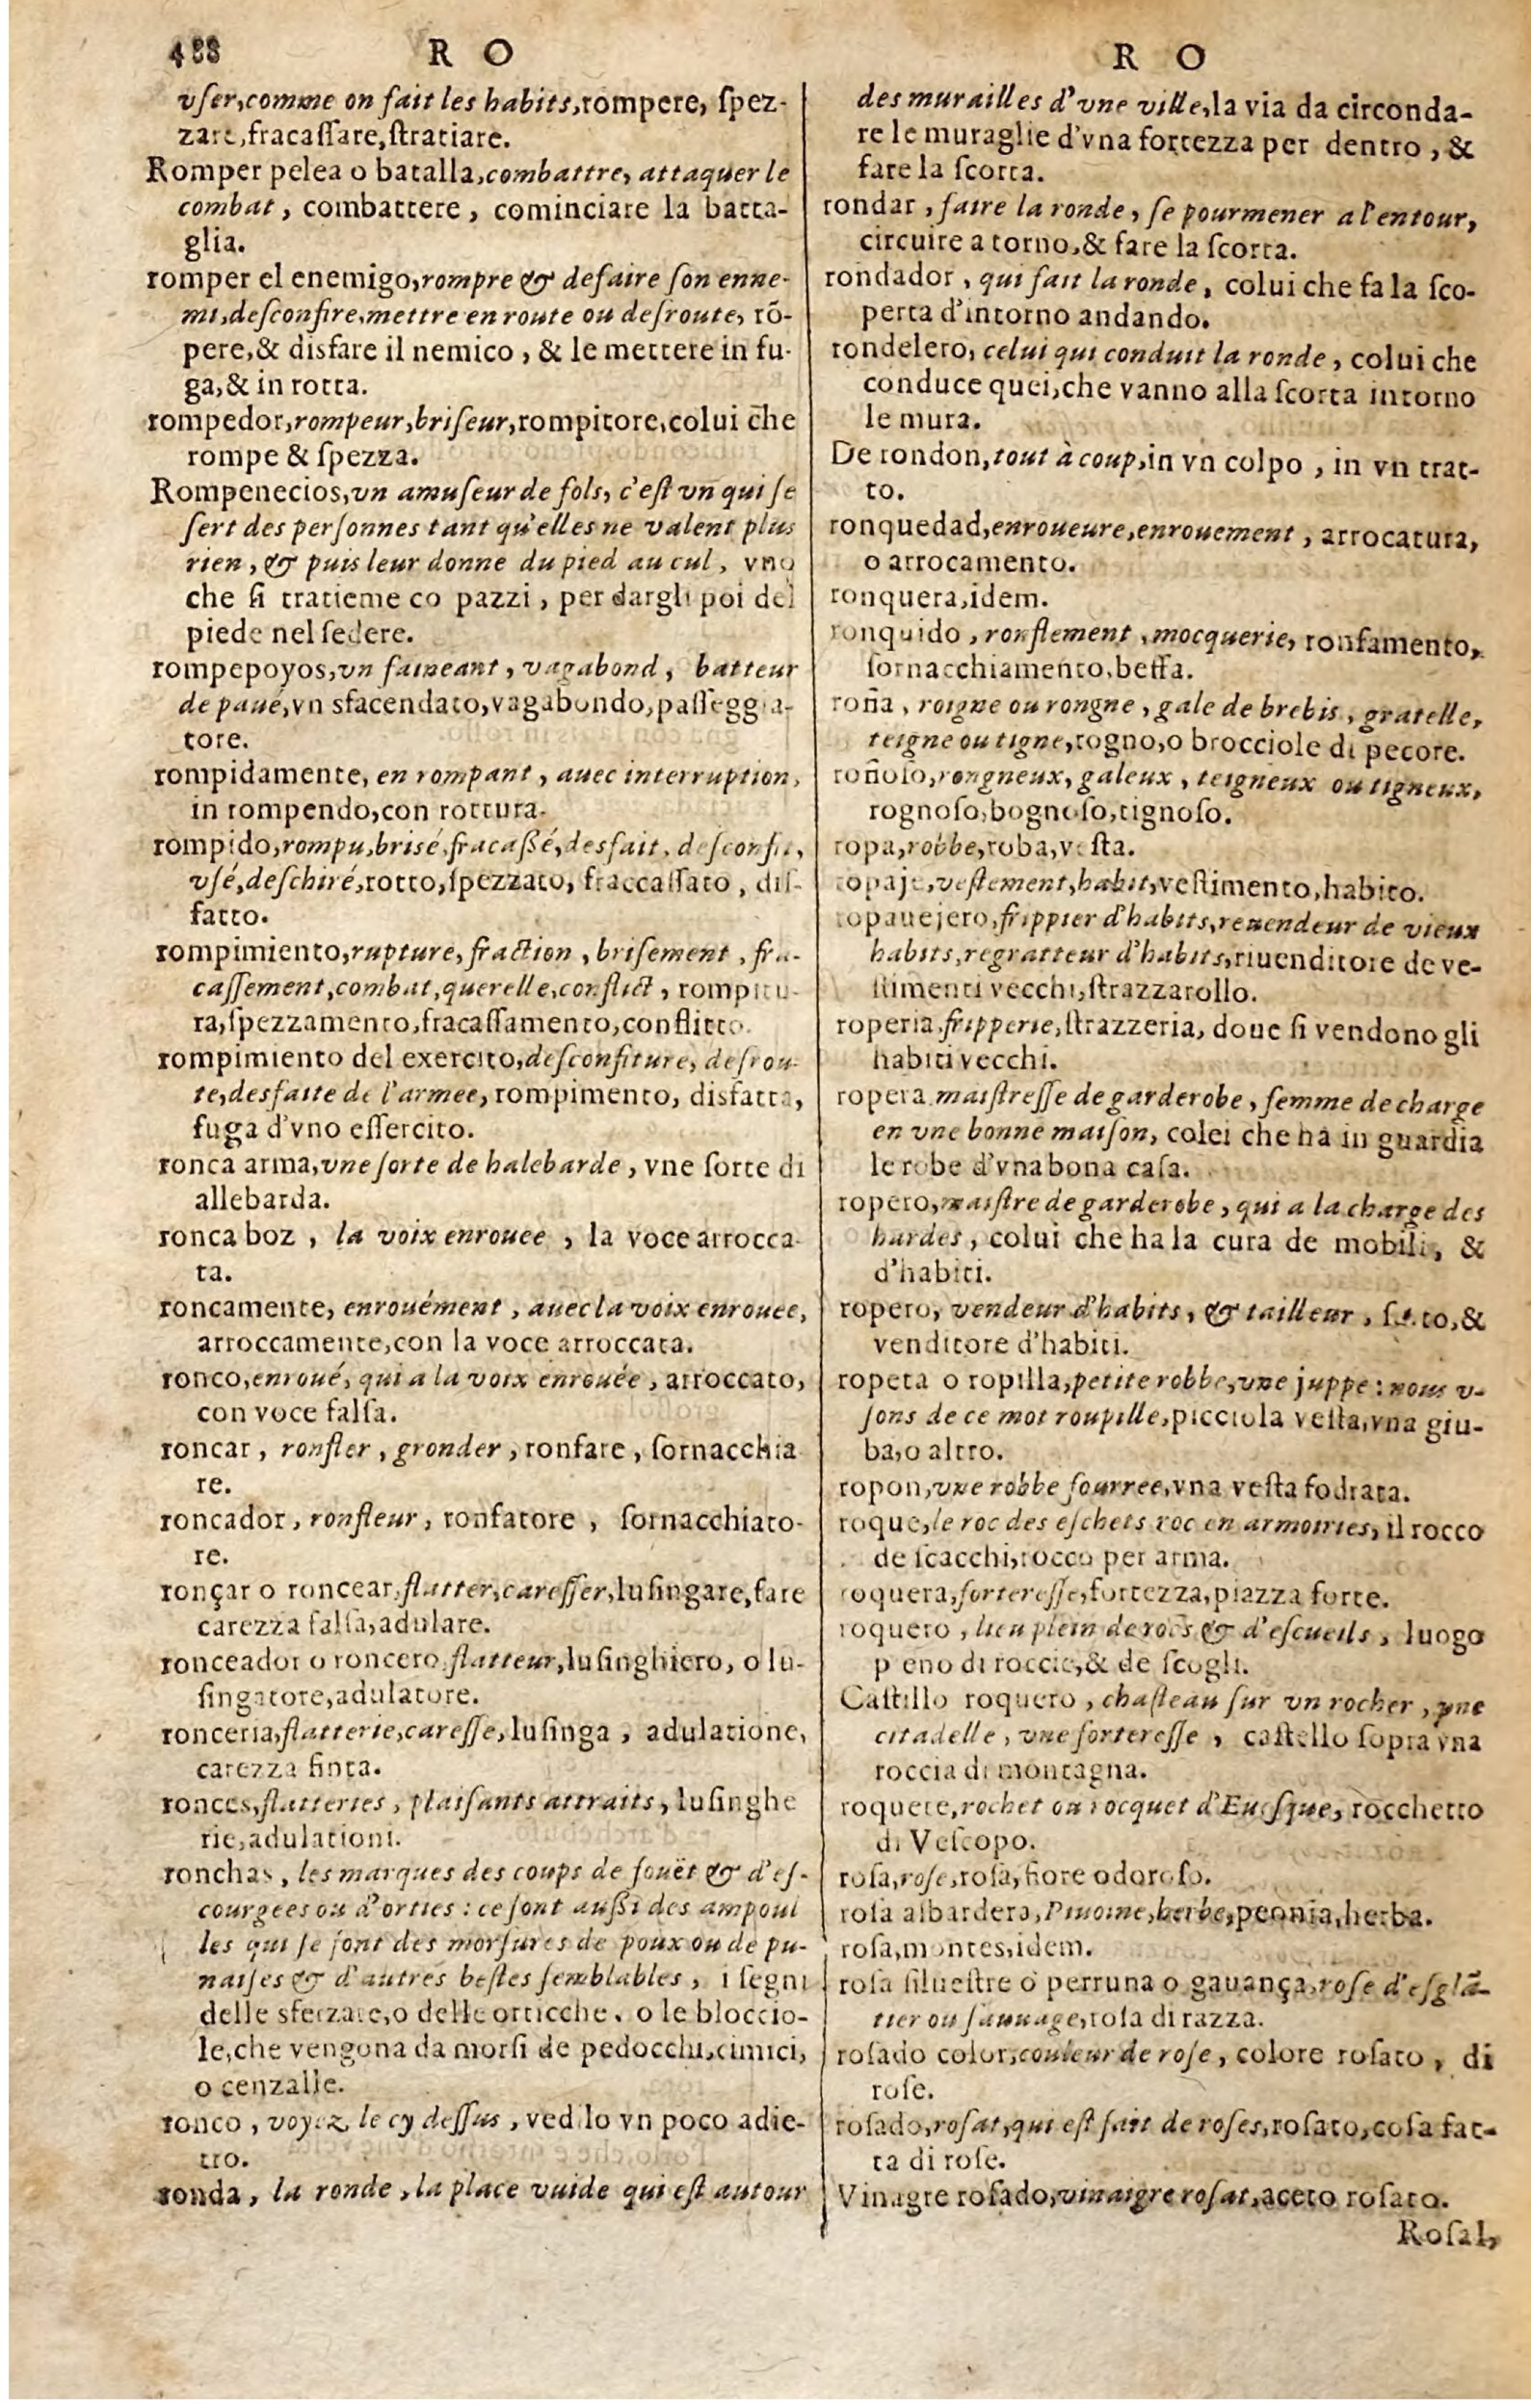 488 R O
R O
vſer, comme on fait les habits, rompere, ſpez-
zare, fracaſſare, ſtratiare.
Romper pelea o batalla, combattre, attaquer le
combat, combattere, cominciare la batta-
glia.
romper el enemigo, rompre & defaire ſon enne-
mi, deſconfire, mettre en route ou deſroute, rõ-
pere, & disfare il nemico, & le mettere in fu-
ga, & in rotta.
rompedor, rompeur, briſeur, rompitore, colui che
rompe & ſpezza.
Rompenecios, vn amuſeur de fols, c'eſt vn qui ſe
ſert des perſonnes tant qu'elles ne valent plus
rien, & puis leur donne du pied au cul, vno
che ſi tratiene co pazzi, per dargli poi del
piede nel ſedere.
rompepoyos, vn faineant, vagabond, batteur
de paué, vn sfacendato, vagabondo, paſſeggia-
tore.
rompidamente, en rompant, auec interruption,
in rompendo, con rottura.
rompido, rompu, brisé, fracaßé, desfait, deſconfit,
vſé, deſchiré, rotto, ſpezzato, fraccaſſato, diſ-
fatto.
rompimiento, rupture, fraction, briſement, fra-
caſſement, combat, querelle, conflict, rompitu-
ra, ſpezzamento, fracaſſamento, conflitto.
rompimiento del exercito, deſconfiture, deſrou-
te, desfaite de l'armee, rompimento, disfatta,
fuga d'vno eſſercito.
ronca arma, vne ſorte de halebarde, vne ſorte di
allebarda.
ronca boz, la voix enrouee, la voce arrocca-
ta.
roncamente, enrouément, auec la voix enrouee,
arroccamente, con la voce arroccata.
ronco, enroué, qui a la voix enrouée, arroccato,
con voce falſa.
roncar, ronfler, gronder, ronfare, ſornacchia
re.
roncador, ronfleur, ronfatore, ſornacchiato-
re.
ronçar o roncear, flatter, careſſer, luſingare, fare
carezza falſa, adulare.
ronceador o roncero, flatteur, luſinghiero, o lu-
ſingatore, adulatore.
ronceria, flatterie, careſſe, luſinga, adulatione,
carezza finta.
ronces, flatteries, plaiſants attraits, luſinghe
rie, adulationi.
ronchas, les marques des coups de fouët & d'eſ-
courgees ou d'orties: ce ſont außi des ampoul
les qui ſe font des morſures de poux ou de pu-
naiſes & d'autres beſtes ſemblables, i ſegni
delle sferzate, o delle orticche, o le bloccio-
le, che vengona da morſi de pedocchi, cimici,
o cenzalle.
ronco, voyez le cy deſſus, vedilo vn poco adie-
tro.
ronda, la ronde, la place vuide qui eſt autour
des murailles d'vne ville, la via da circonda-
re le muraglie d'vna fortezza per dentro, &
fare la ſcorta.
rondar, faire la ronde, ſe pourmener a l'entour,
circuire a torno, & fare la ſcorta.
rondador, qui fait la ronde, colui che fa la ſco-
perta d'intorno andando.
rondelero, celui qui conduit la ronde, colui che
conduce quei, che vanno alla ſcorta intorno
le mura.
De rondon, tout à coup, in vn colpo, in vn trat-
to.
ronquedad, enroueure, enrouement, arrocatura,
o arrocamento.
ronquera, idem.
ronquido, ronflement, mocquerie, ronfamento,
ſornacchiamento, beffa.
roña, roigne ou rongne, gale de brebis, gratelle,
teigne ou tigne, rogno, o brocciole di pecore.
roñoſo, rongneux, galeux, teigneux ou tigneux,
rognoſo, bognoſo, tignoſo.
ropa, robbe, roba, veſta.
ropaje, veſtement, habit, veſtimento, habito.
ropauejero, frippier d'habits, reuendeur de vieux
habits, regratteur d'habits, riuenditore de ve-
ſtimenti vecchi, ſtrazzarollo.
roperia, fripperie, ſtrazzeria, doue ſi vendono gli
habiti vecchi.
ropera, maiſtreſſe de garderobe, femme de charge
en vne bonne maiſon, colei che ha in guardia
le robe d'vna bona caſa.
ropero, maiſtre de garderobe, qui a la charge des
hardes, colui che ha la cura de mobili, &
d'habiti.
ropero, vendeur d'habits, & tailleur, to, &
venditore d'habiti.
ropeta o ropilla, petite robbe, vne juppe: nous v-
ſons de ce mot roupille, picciola veſta, vna giu-
ba, o altro.
ropon, vne robbe fourree, vna veſta fodrata.
roque, le roc des eſchets roc en armoiries, il rocco
de ſcacchi, rocco per arma.
roquera, fortereſſe, fortezza, piazza forte.
roquero, lieu plein de rocs & d'eſcueils, luogo
pieno di roccie, & de ſcogli.
Caſtillo roquero, chaſteau ſur vn rocher, vne
citadelle, vne fortereſſe, caſtello ſopra vna
roccia di montagna.
roquete, rochet ou rocquet d'Eueſque, rocchetto
di Veſcopo.
roſa, roſe, roſa, fiore odoroſo.
roſa albardera, Piuoine, herbe, peonia, herba.
roſa, montes, idem.
roſa ſilueſtre o perruna o gauança, roſe d'eſglã-
tier ou ſauuage, roſa di razza.
roſado color, couleur de roſe, colore roſato, di
roſe.
roſado, roſat, qui eſt fait de roſes, roſato, coſa fat-
ta di roſe.
Vinagre roſado, vinaigre roſat, aceto roſato.
Roſal,